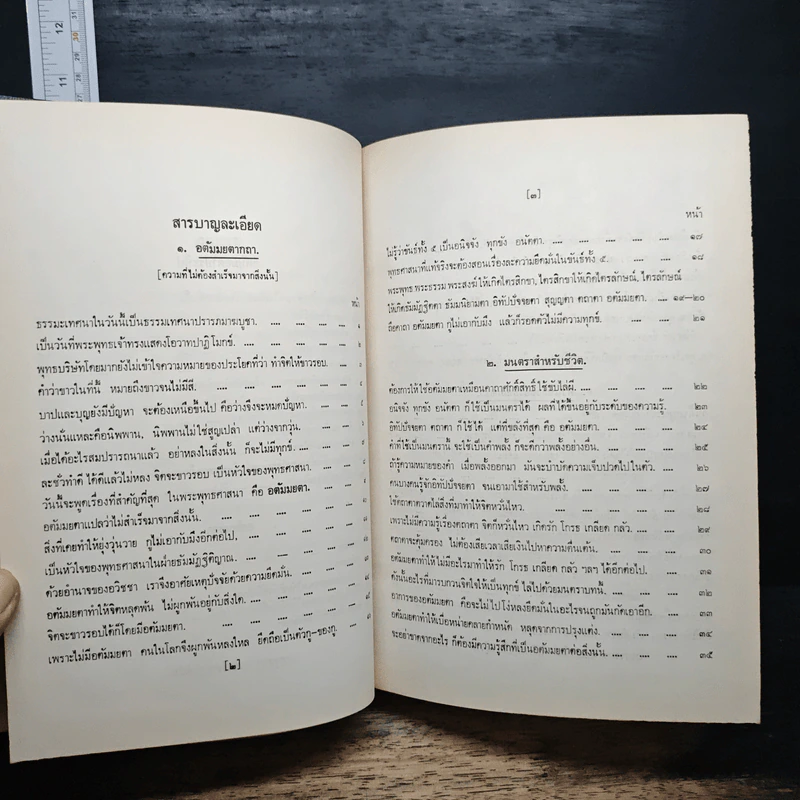 สารบาญละเอียด
๑. อตัมมยตากถา.
[ความที่ไม่ต้องสำเร็จมาจากสิ่งนั้น]
หน้า
ธรรมะเทศนาในวันนี้เป็นธรรมเทศนาปรารภมาฆบูชา. .... .... .... ๑
เป็นวันที่พระพุทธเจ้าทรงแสดงโอวาทปาฏิโมกข์. .... .... .... ๑
พุทธบริษัทโดยมากยังไม่เข้าใจความหมายของประโยคที่ว่า ทำจิตให้ขาวรอบ.
คำว่าขาวในที่นี้ หมายถึงขาวจนไม่มีสี. .... .... .... ....
บาปและบุญยังมีปัญหา จะต้องเหนือขึ้นไป คือว่างจึงจะหมดปัญหา. ....
ว่างนั่นแหละคือนิพพาน, นิพพานไม่ใช่สูญเปล่า แต่ว่างจากวุ่น. ....
เมื่อได้อะไรสมปรารถนาแล้ว อย่าหลงในสิ่งนั้น ก็จะไม่มีทุกข์. ....
ละชั่วทำดี ได้ดีแล้วไม่หลง จิตจะขาวรอบ เป็นหัวใจของพุทธศาสนา. ....
วันนี้จะพูดเรื่องที่สำคัญที่สุด ในพระพุทธศาสนา คือ อตัมมยตา. ....
อตัมมยตาแปลว่าไม่สำเร็จมาจากสิ่งนั้น. .... .... .... ....
สิ่งที่เคยทำให้ยุ่งวุ่นวาย กูไม่เอากับมึงอีกต่อไป. .... .... ....
เป็นหัวใจของพุทธศาสนาในฝ่ายธัมมัฏฐิติญาณ. .... .... ....
ด้วยอำนาจของอวิชชา เราจึงอาศัยเหตุปัจจัยด้วยความยึดมั่น. .... ....
อตัมมยตาทำให้จิตหลุดพ้น ไม่ผูกพันอยู่กับสิ่งใด. .... .... ....
จิตจะขาวรอบได้ก็โดยมีอตัมมยตา. .... .... .... ....
เพราะไม่มีอตัมมยตา คนในโลกจึงผูกพันหลงใหล ยึดถือเป็นตัวกู-ของกู.
[๒]
[๓]
หน้า
ไม่รู้ว่าขันธ์ทั้ง ๕ เป็นอนิจจัง ทุกขัง อนัตตา. .... .... .... .... ๑๗
พุทธศาสนาที่แท้จริงจะต้องสอนเรื่องละความยึดมั่นในขันธ์ทั้ง ๕. .... .... ๑๘
พระพุทธ พระธรรม พระสงฆ์ ให้เกิดไตรสิกขา, ไตรสิกขาให้เกิดไตรลักษณ์, ไตรลักษณ์
ให้เกิดธัมมัฏฐิตตา ธัมมนิยามตา อิทัปปัจจยตา สุญญตา ตถาตา อตัมมยตา. .... ๑๙—๒๐
ถือคาถา อตัมมยตา กูไม่เอากับมึง แล้วก็รอดตัวไม่มีความทุกข์. .... .... ๒๑
๒. มนตราสำหรับชีวิต.
ต้องการให้ใช้อตัมมยตาเหมือนคาถาศักดิ์สิทธิ์ ใช้ขับไล่ผี. .... .... .... ๒๒
อนิจจัง ทุกขัง อนัตตา ก็ใช้เป็นมนตราได้ ผลที่ได้ขึ้นอยู่กับระดับของความรู้. .... ๒๓
อิทัปปัจจยตา ตถาตา ก็ใช้ได้ แต่ที่ขลังที่สุด คือ อตัมมยตา. .... .... ๒๔
คำที่ใช้เป็นมนตรานี้ จะใช้เป็นคำพลั้งก็มา ก็จะดีกว่าพลั้งอย่างอื่น. .... .... ๒๕
ถ้ารู้ความหมายของคำ เมื่อพลั้งออกมา มันจะบำบัดความเจ็บปวดไปในตัว. .... ๒๖
คนบางคนรู้จักอิทัปปัจจยตา จนเอามาใช้สำหรับพลั้ง. .... .... .... ๒๗
ใช้ตถาตาตวาดใส่สิ่งที่มาทำให้จิตหวั่นไหว.
เพราะไม่มีความรู้เรื่องตถาตา จิตก็หวั่นไหว เกิดรัก โกรธ เกลียด กลัว. .... .... ๒๙
ตถาตาจะคุ้มครอง ไม่ต้องเสียเวลาเสียเงินไปหาความตื่นเต้น. .... .... ๓๐
อตัมมยตาทำให้ ไม่มีอะไรมาทำให้รัก โกรธ เกลียด กลัว ฯลฯ ได้อีกต่อไป. .... ๓๑
ดังนั้นอะไรที่มารบกวนจิตใจให้เป็นทุกข์ ไล่ไปด้วยมนตราบทนี้. .... .... ๓๒
อาการของอตัมมยตา คือจะไม่ไปโง่หลงยึดมั่นในอะไรจนถูกมันกัดเอาอีก. .... ๓๓
อตัมมยตาทำให้เบื่อหน่ายคลายกำหนัด หลุดจากการปรุงแต่ง. .... .... ๓๔
จะอย่าขาดจากอะไร ก็ต้องมีความรู้สึกที่เป็นอตัมมยตาต่อสิ่งนั้น. .... .... ๓๕
12
11